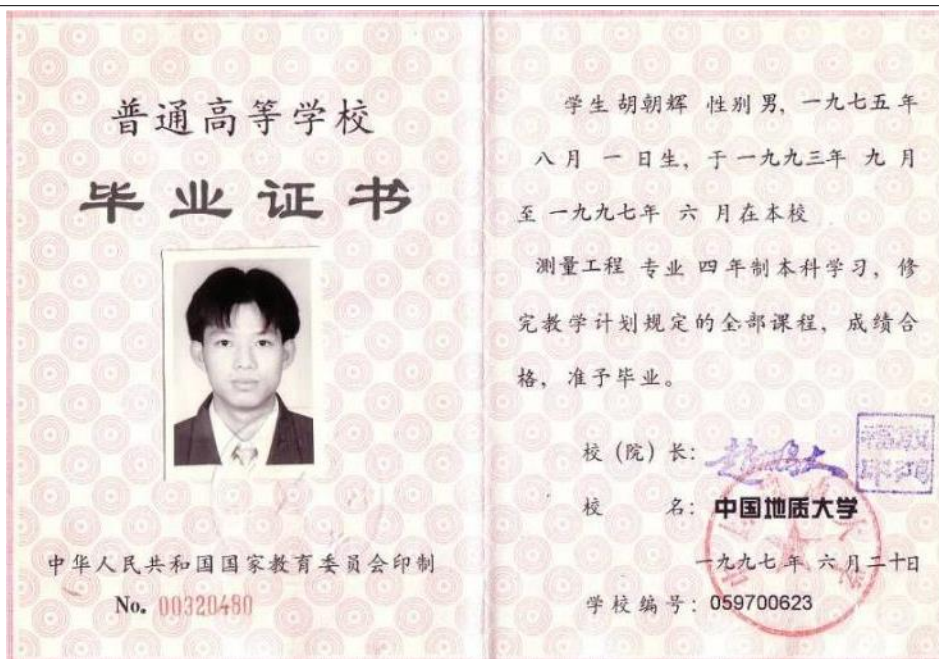 普通高等学校
毕业证书
中华人民共和国国家教育委员会印制
No. 00320480
学生胡朝辉 性别男，一九七五年
八月 一日生，于一九九三年 九月
至一九九七年 六 月在本校
测量工程 专业 四年制本科学习，修
完教学计划规定的全部课程，成绩合
格，准予毕业。
校（院）长：
校 名：中国地质大学
一九九七年 六月二十日
学校编号：059700623